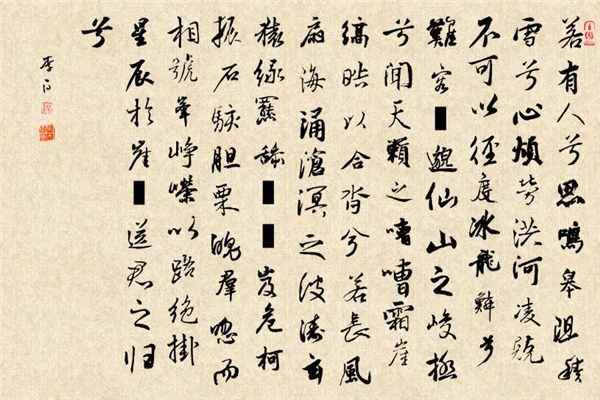 若有人兮思鳴皋阻積
雪兮心煩勞洪河凌兢
不可以徑度冰龍鱗兮
難容邈仙山之峻極
兮聞天籟之嘈嘈霜崖
縞皓以合沓兮若長風
扇海涌滄溟之波濤玄
猿綠羆舔岌危柯
振石駭胆栗魄群呼而
相號峯崢嶸以路絕掛
星辰於崖送君之归
兮
李白